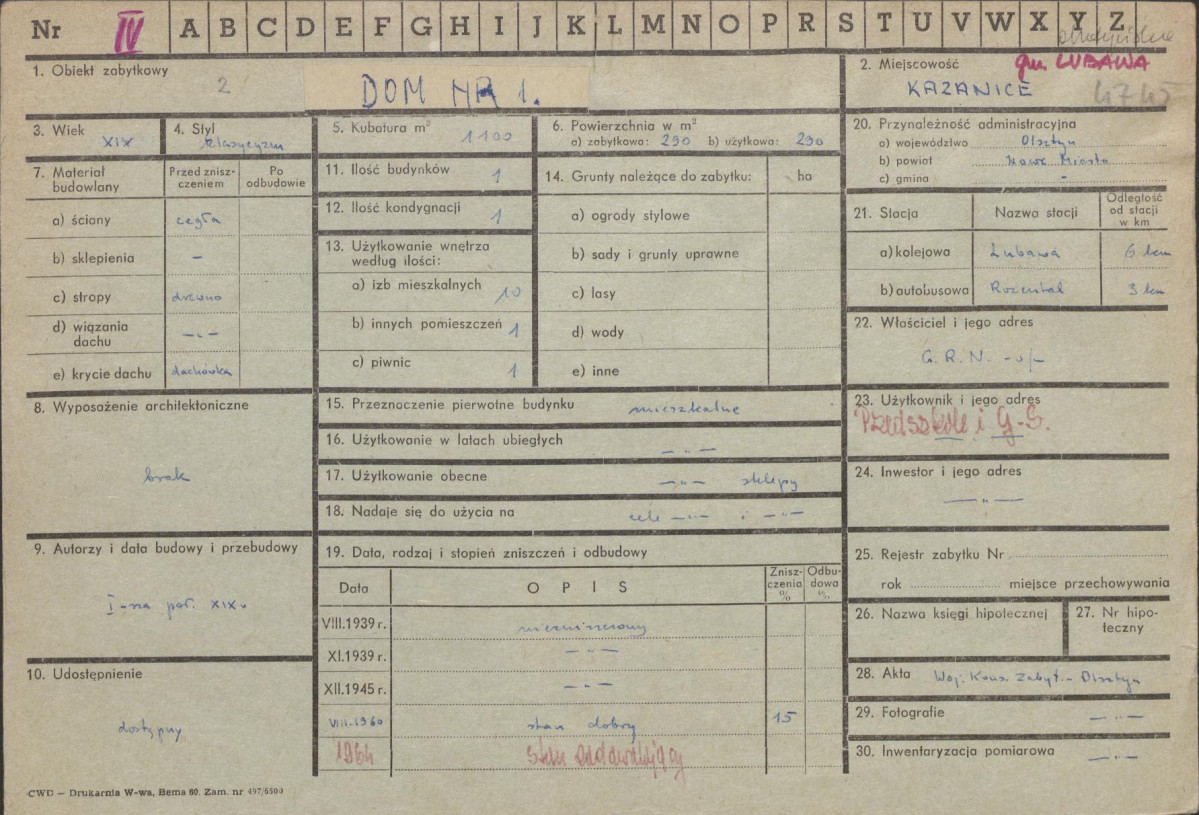 Nr IV A B C D E F G H I J K L M N O P R S T U V W X Y Z
1. Obiekt zabytkowy
2
DOM NR 1.
2. Miejscowość
gm. LUBAWA
KAZANICE
4745
3. Wiek
XIX
4. Styl
klasycyzm
5. Kubatura m³
1100
6. Powierzchnia w m²
a) zabytkowa: 290 b) użytkowa: 290
7. Materiał budowlany
Przed znisz-
czeniem
Po
odbudowie
a) ściany cegła
b) sklepienia –
c) stropy drewno
d) wiązania
dachu -„-
e) krycie dachu dachówka
8. Wyposażenie architektoniczne
brak
9. Autorzy i data budowy i przebudowy
I-sza poł. XIX w
10. Udostępnienie
dostępny
11. Ilość budynków 1
12. Ilość kondygnacji 1
13. Użytkowanie wnętrza
według ilości:
a) izb mieszkalnych 10
b) innych pomieszczeń 1
c) piwnic 1
14. Grunty należące do zabytku: ha
a) ogrody stylowe
b) sady i grunty uprawne
c) lasy
d) wody
e) inne
15. Przeznaczenie pierwotne budynku mieszkalne
16. Użytkowanie w latach ubiegłych -„-
17. Użytkowanie obecne -„- sklepy
18. Nadaje się do użycia na cele -„- i -„-
19. Data, rodzaj i stopień zniszczeń i odbudowy
Data OPIS Znisz-
czenia
%
Odbu-
dowa
%
VIII.1939 r. niezniszczony
XI.1939 r. -„-
XII.1945 r. -„-
VIII-1960 stan dobry 15
1964 stan zadawalający
20. Przynależność administracyjna
a) województwo Olsztyn
b) powiat Nowe Miasto
c) gmina -
21. Stacja Nazwa stacji Odległość
od stacji
w km
a) kolejowa Lubawa 6 km
b) autobusowa Rozental 3 km
22. Właściciel i jego adres
G. R. N.
23. Użytkownik i jego adres
Przedszkole i G-S.
24. Inwestor i jego adres
-„-
25. Rejestr zabytku Nr
rok miejsce przechowywania
26. Nazwa księgi hipotecznej
27. Nr hipo-
teczny
28. Akta Woj. Kons. Zabyt. - Olsztyn
29. Fotografie -„-
30. Inwentaryzacja pomiarowa -„-
CWD — Drukarnia W-wa, Bema 60. Zam. nr 497/6500